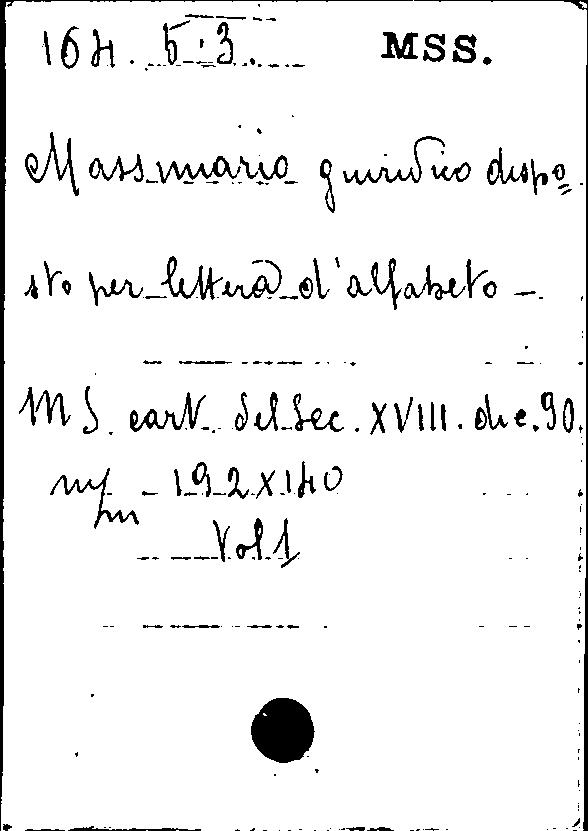 164. 5.3. MSS.
Massimario giuridico dispo=
sto per lettera d'alfabeto –
MS. cart. del Sec. XVIII. di c. 90.
m/m – 192 X 140
Vol 1